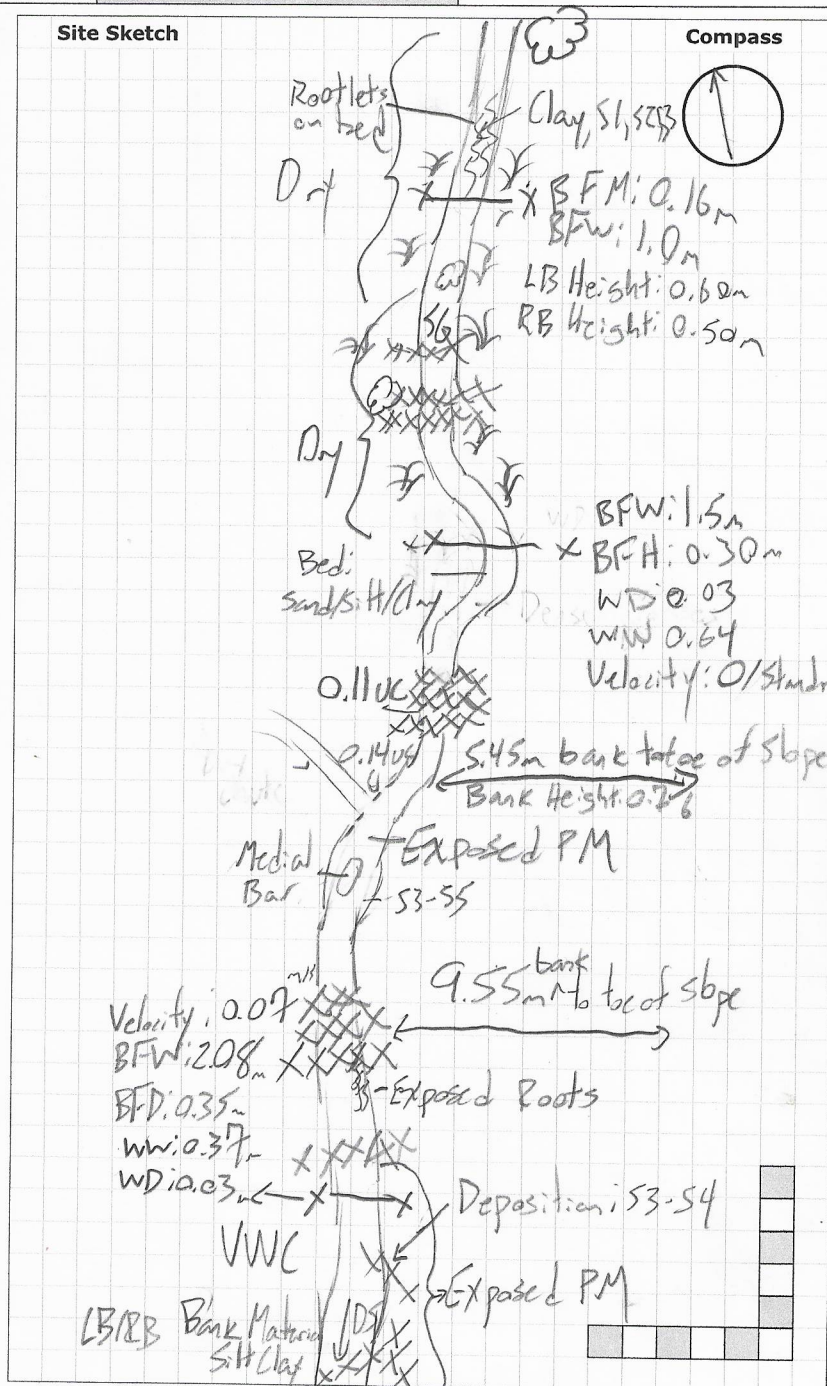 Site Sketch
Compass
Rootlets
on bed
Clay, S1, S2,
Dry
BFM: 0.16m
BFW: 1.0m
LB Height: 0.60m
RB Height: 0.50m
SG
Dry
BFW: 1.5m
BFH: 0.30m
WD: 0.03
WW 0.64
Velocity: 0/Stand
Bed:
Sand/Silt/Clay
0.11 UC
0.14 UC
5.45m bank to toe of Slope
Bank Height: 0.76
Exposed PM
Medial
Bar
S3-S5
9.55m bank to toe of Slope
Velocity: 0.07 m/s
BFW: 2.08m
BFD: 0.35m
WW: 0.37m
WD: 0.03m
Exposed Roots
Deposition: S3-S4
VWC
Exposed PM
LB/RB Bank Material
Silt Clay
DS